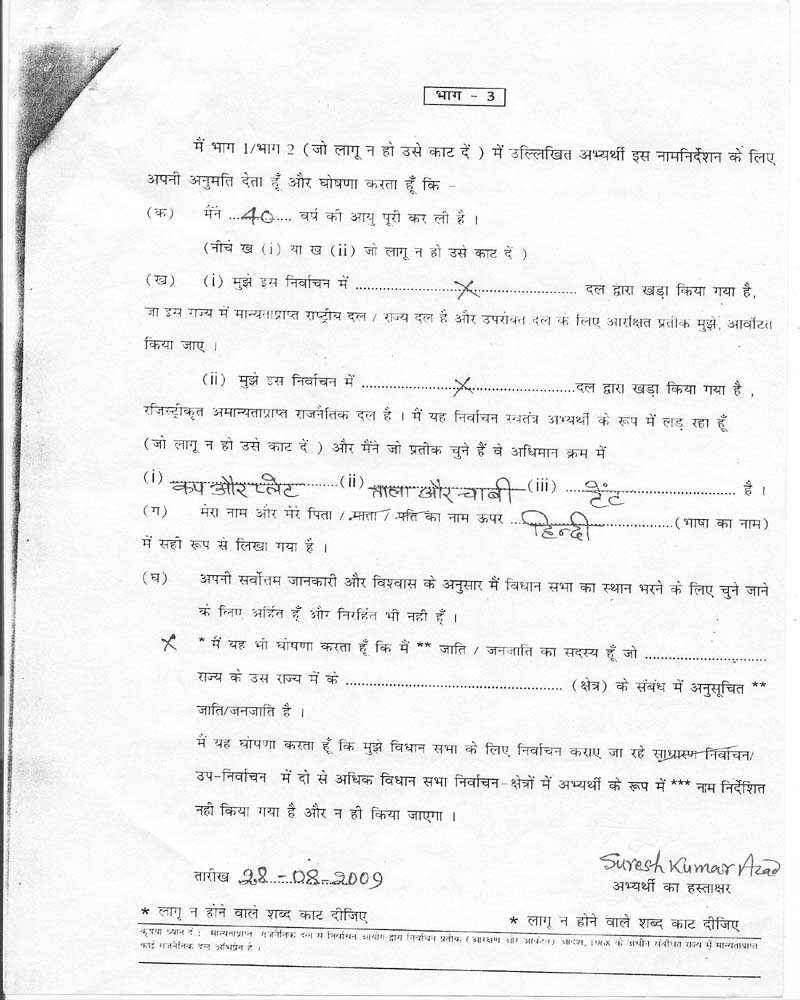 भाग - 3
मैं भाग 1/भाग 2 (जो लागू न हो उसे काट दें ) में उल्लिखित अभ्यर्थी इस नामनिर्देशन के लिए
अपनी अनुमति देता हूँ और घोषणा करता हूँ कि -
(क) मैंने ...40..... वर्ष की आयु पूरी कर ली है ।
(नीचे ख (i) या ख (ii) जो लागू न हो उसे काट दें )
(ख) (i) मुझे इस निर्वाचन में .....................X..................... दल द्वारा खड़ा किया गया है,
जा इस राज्य में मान्यताप्राप्त राष्ट्रीय दल / राज्य दल है और उपरोक्त दल के लिए आरक्षित प्रतीक मुझे, आवंटित
किया जाए ।
(ii) मुझे इस निर्वाचन में .....................X.....................दल द्वारा खड़ा किया गया है ,
रजिस्ट्रीकृत अमान्यताप्राप्त राजनैतिक दल है । मैं यह निर्वाचन स्वतंत्र अभ्यर्थी के रूप में लड़ रहा हूँ
(जो लागू न हो उसे काट दें ) और मैंने जो प्रतीक चुने हैं वे अधिमान क्रम में
(i) कप और प्लेट (ii) ताला और चाबी (iii) टेंट है ।
(ग) मेरा नाम और मेरे पिता / माता / पति का नाम ऊपर ...हिन्दी...............(भाषा का नाम)
में सही रूप से लिखा गया है ।
(घ) अपनी सर्वोतम जानकारी और विश्वास के अनुसार मैं विधान सभा का स्थान भरने के लिए चुने जाने
के लिए अर्हित हूँ और निरर्हित भी नही हूँ ।
X * मैं यह भी घोषणा करता हूँ कि मैं ** जाति / जनजाति का सदस्य हूँ जो .........................
राज्य के उस राज्य में के ............................................ (क्षेत्र) के संबंध में अनुसूचित **
जाति/जनजाति है ।
मैं यह घोषणा करता हूँ कि मुझे विधान सभा के लिए निर्वाचन कराए जा रहे साधारण निर्वाचन/
उप-निर्वाचन में दो से अधिक विधान सभा निर्वाचन-क्षेत्रों में अभ्यर्थी के रूप में *** नाम निर्देशित
नही किया गया है और न ही किया जाएगा ।
Suresh Kumar Azad
तारीख 28-08-2009
अभ्यर्थी का हस्ताक्षर
* लागू न होने वाले शब्द काट दीजिए * लागू न होने वाले शब्द काट दीजिए
कृपया ध्यान दें : मान्यताप्राप्त राजनैतिक दल से निर्वाचन आयोग द्वारा निर्वाचन प्रतीक ( आरक्षण और आवंटन) आदेश, 1968 के अधीन संबंधित राज्य में मान्यताप्राप्त
कोई राजनैतिक दल अभिप्रेत है ।